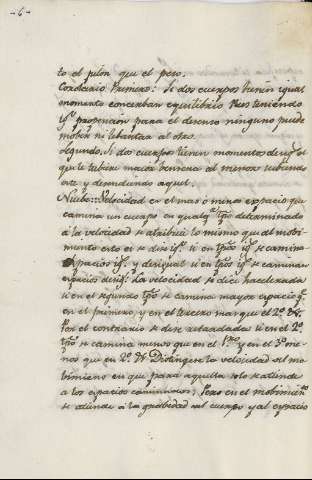 -6-
to el pilon que el peso.
Corolario Primero: Si dos cuerpos tienen igual
momento conserban equilibrio Pues teniendo
ygl propencion para el decenso ninguno puede
mober ni lebantar al otro.
Segundo. Si dos cuerpos tienen momentos desigs. el
que le tubiere maior bencera al menor subiendo
este y decendiendo aquel.
Velocidad es el mas o menos espacio que
camina un cuerpo en qualqr. tpõ. determinado
a la velocidad se atribuie lo mismo que al mobi-
miento esto es se dice ygl. si en tpõs ygs. se caminan
espacios ygs. y desigual si en tpõs ygs. se caminan
espacios desigs. La velocidad se dice hacelerada
si en el segundo tpõ se camina mayor espacio q.
en el primero, y en el tercero mas que el 2º &.
Por el contrario se dice retardada si en el 2º
tpõ se camina menos que en el 1ro. y en el 3º me-
nos que en 2º &. Distinguese la velocidad del mo-
bimiento en que para aquella solo se atiende
a los espacios caminados; Pero en el mobimiento
se atiende a la grabedad del cuerpo y al espacio